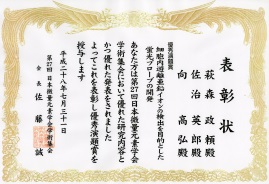 表彰状
萩森政頼殿
佐治英郎殿
向高弘殿
優秀演題賞
細胞内遊離亜鉛イオンの検出を目的とした
蛍光プローブの開発
あなた方は第27回日本微量元素学会
学術集会において優れた研究内容と
かつ優れた発表をされました
よってこれを表彰し優秀演題賞を
授与します
平成二十八年七月三十一日
第27回 日本微量元素学会学術集会
会長 佐藤 誠